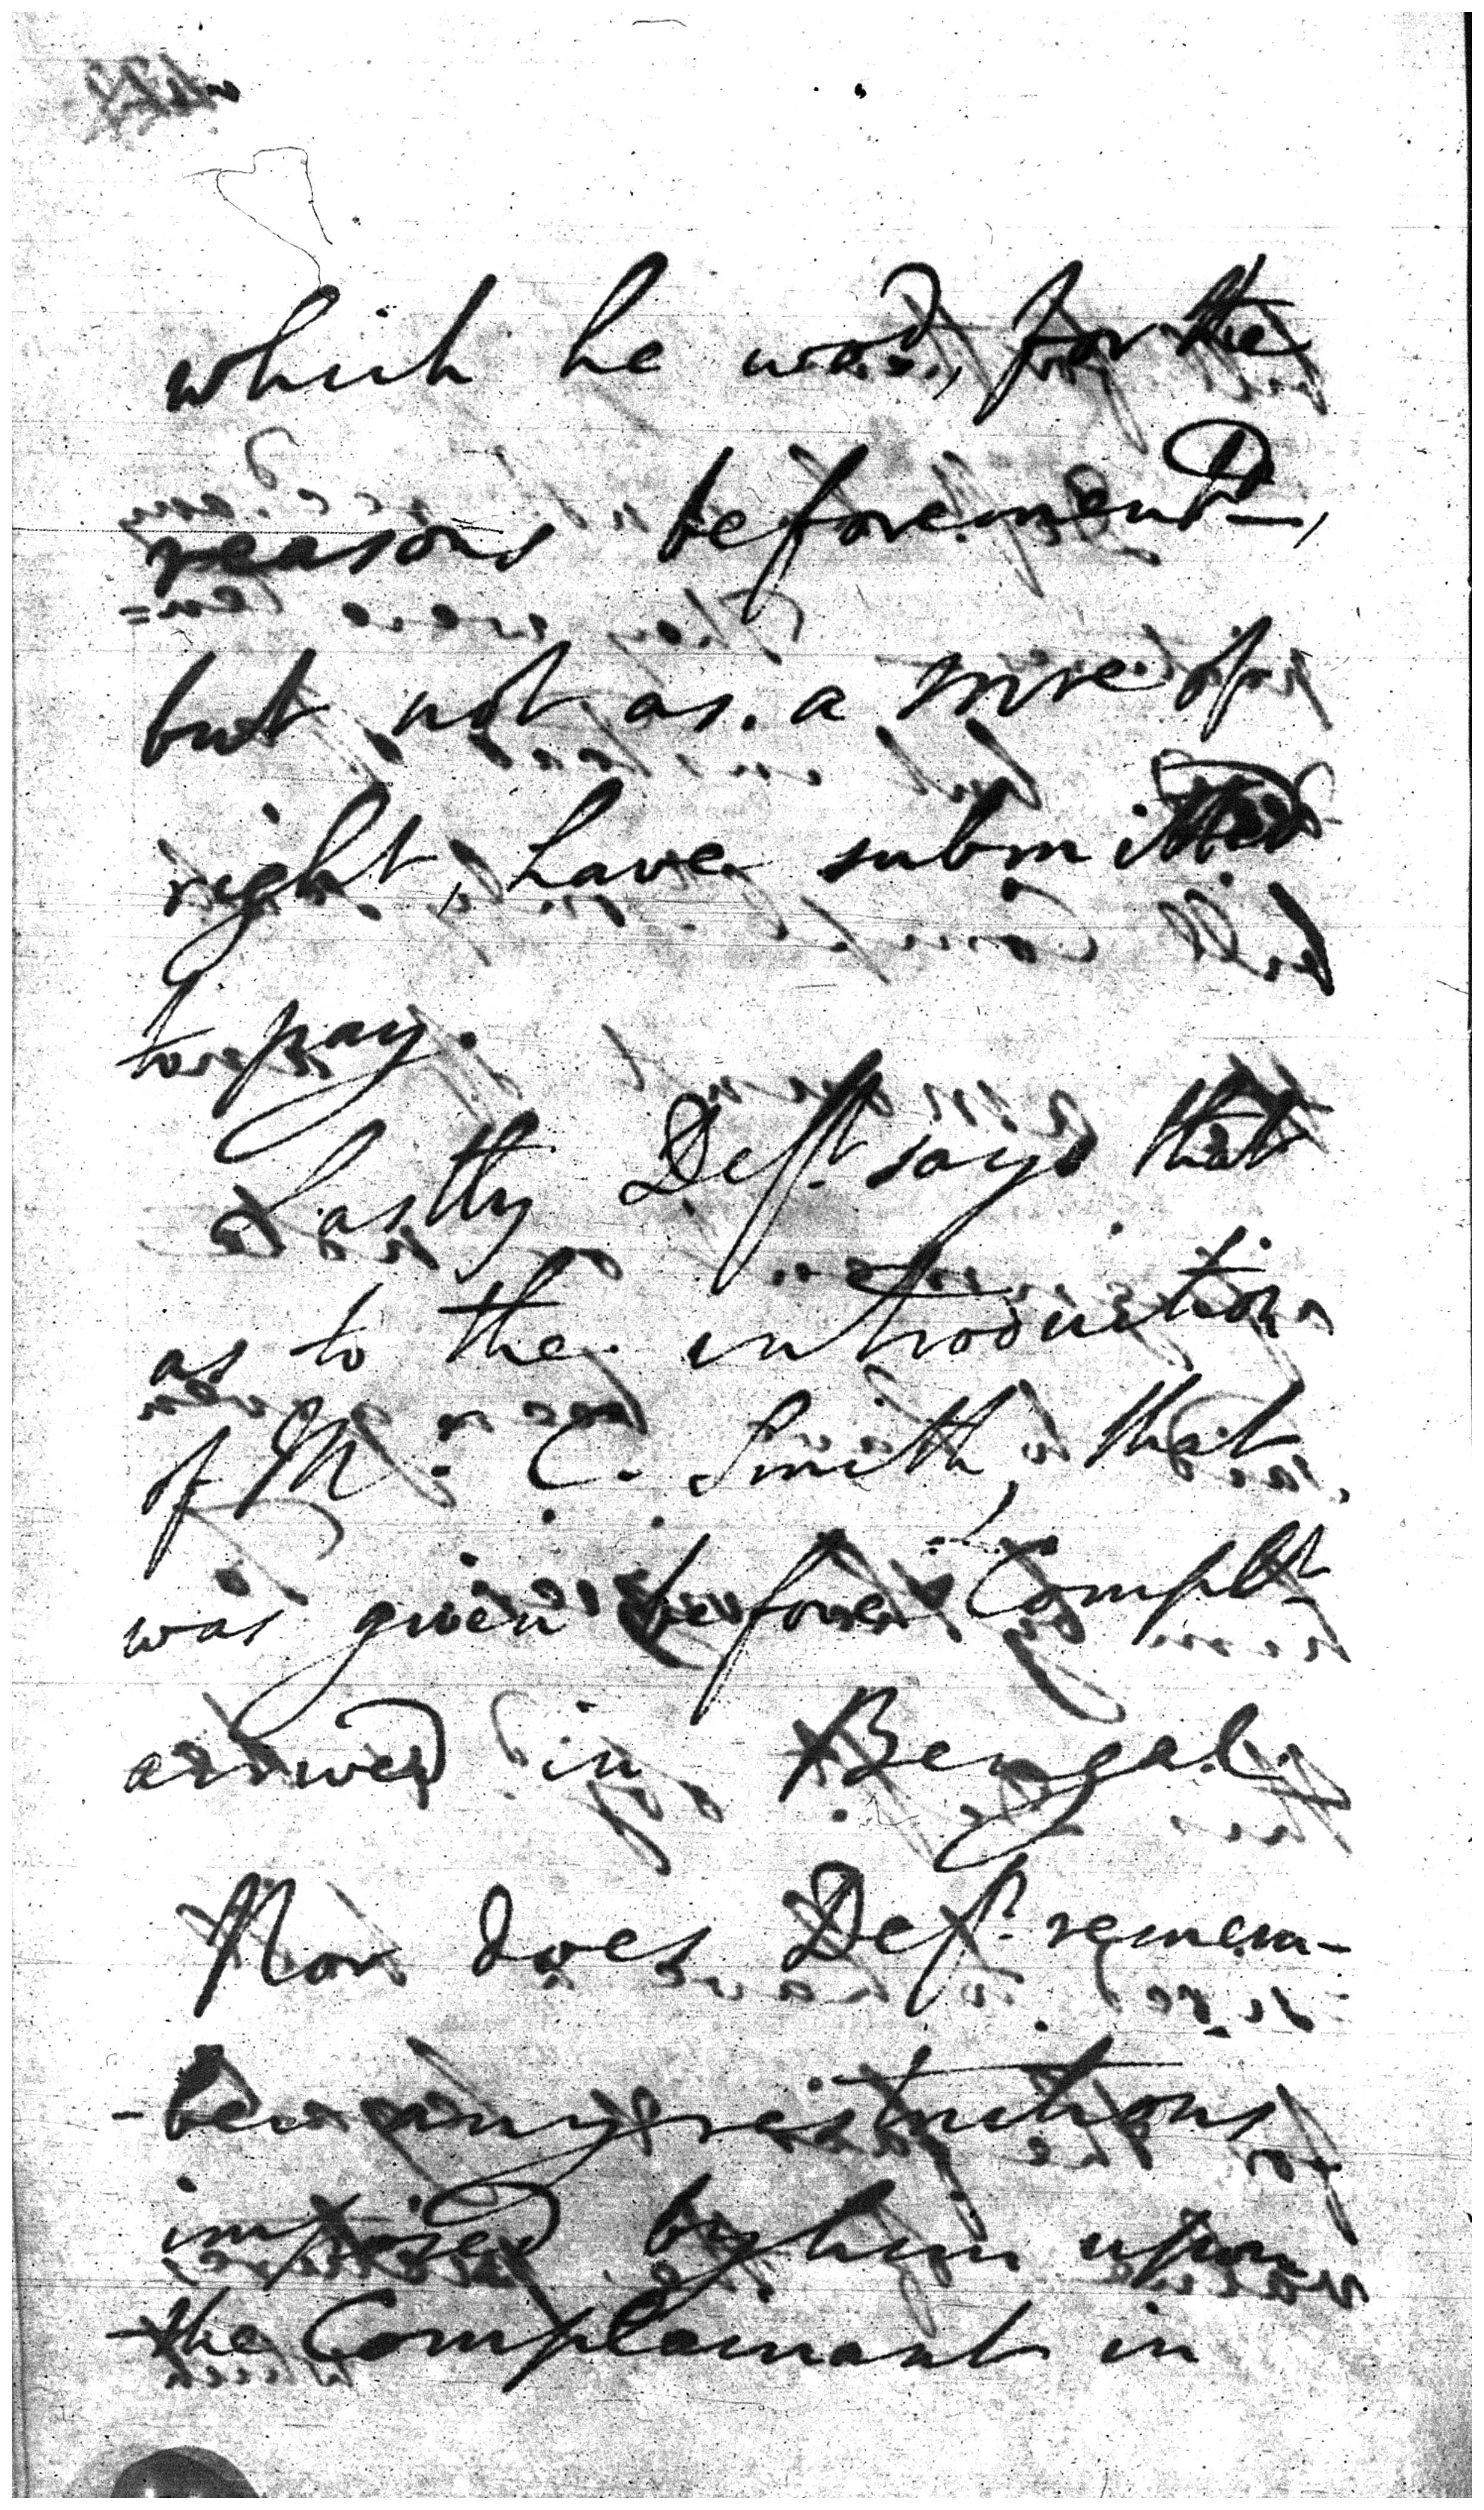 which he wod, for the
reasons beforementd,
but not as a mre of
right, have submitted
to pay.
Lastly Deft. says that
as to the introduction
of Mr. C. Smith, that
was given before Complt
arrived in Bengal.
Nor does Deft. remem-
-ber any restrictions
imposed by him upon
the Complainant in